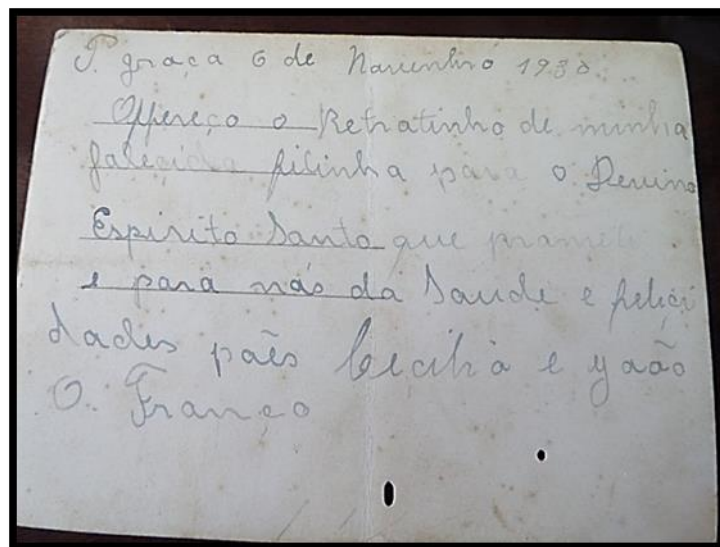 P. graça 6 de Novembro 1930
Offereço o Retratinho de minha
falecida filinha para o Devino
Espirito Santo que prameti
e para nós da Saude e felici
dades paes Cecilia e yoão
O. Franco